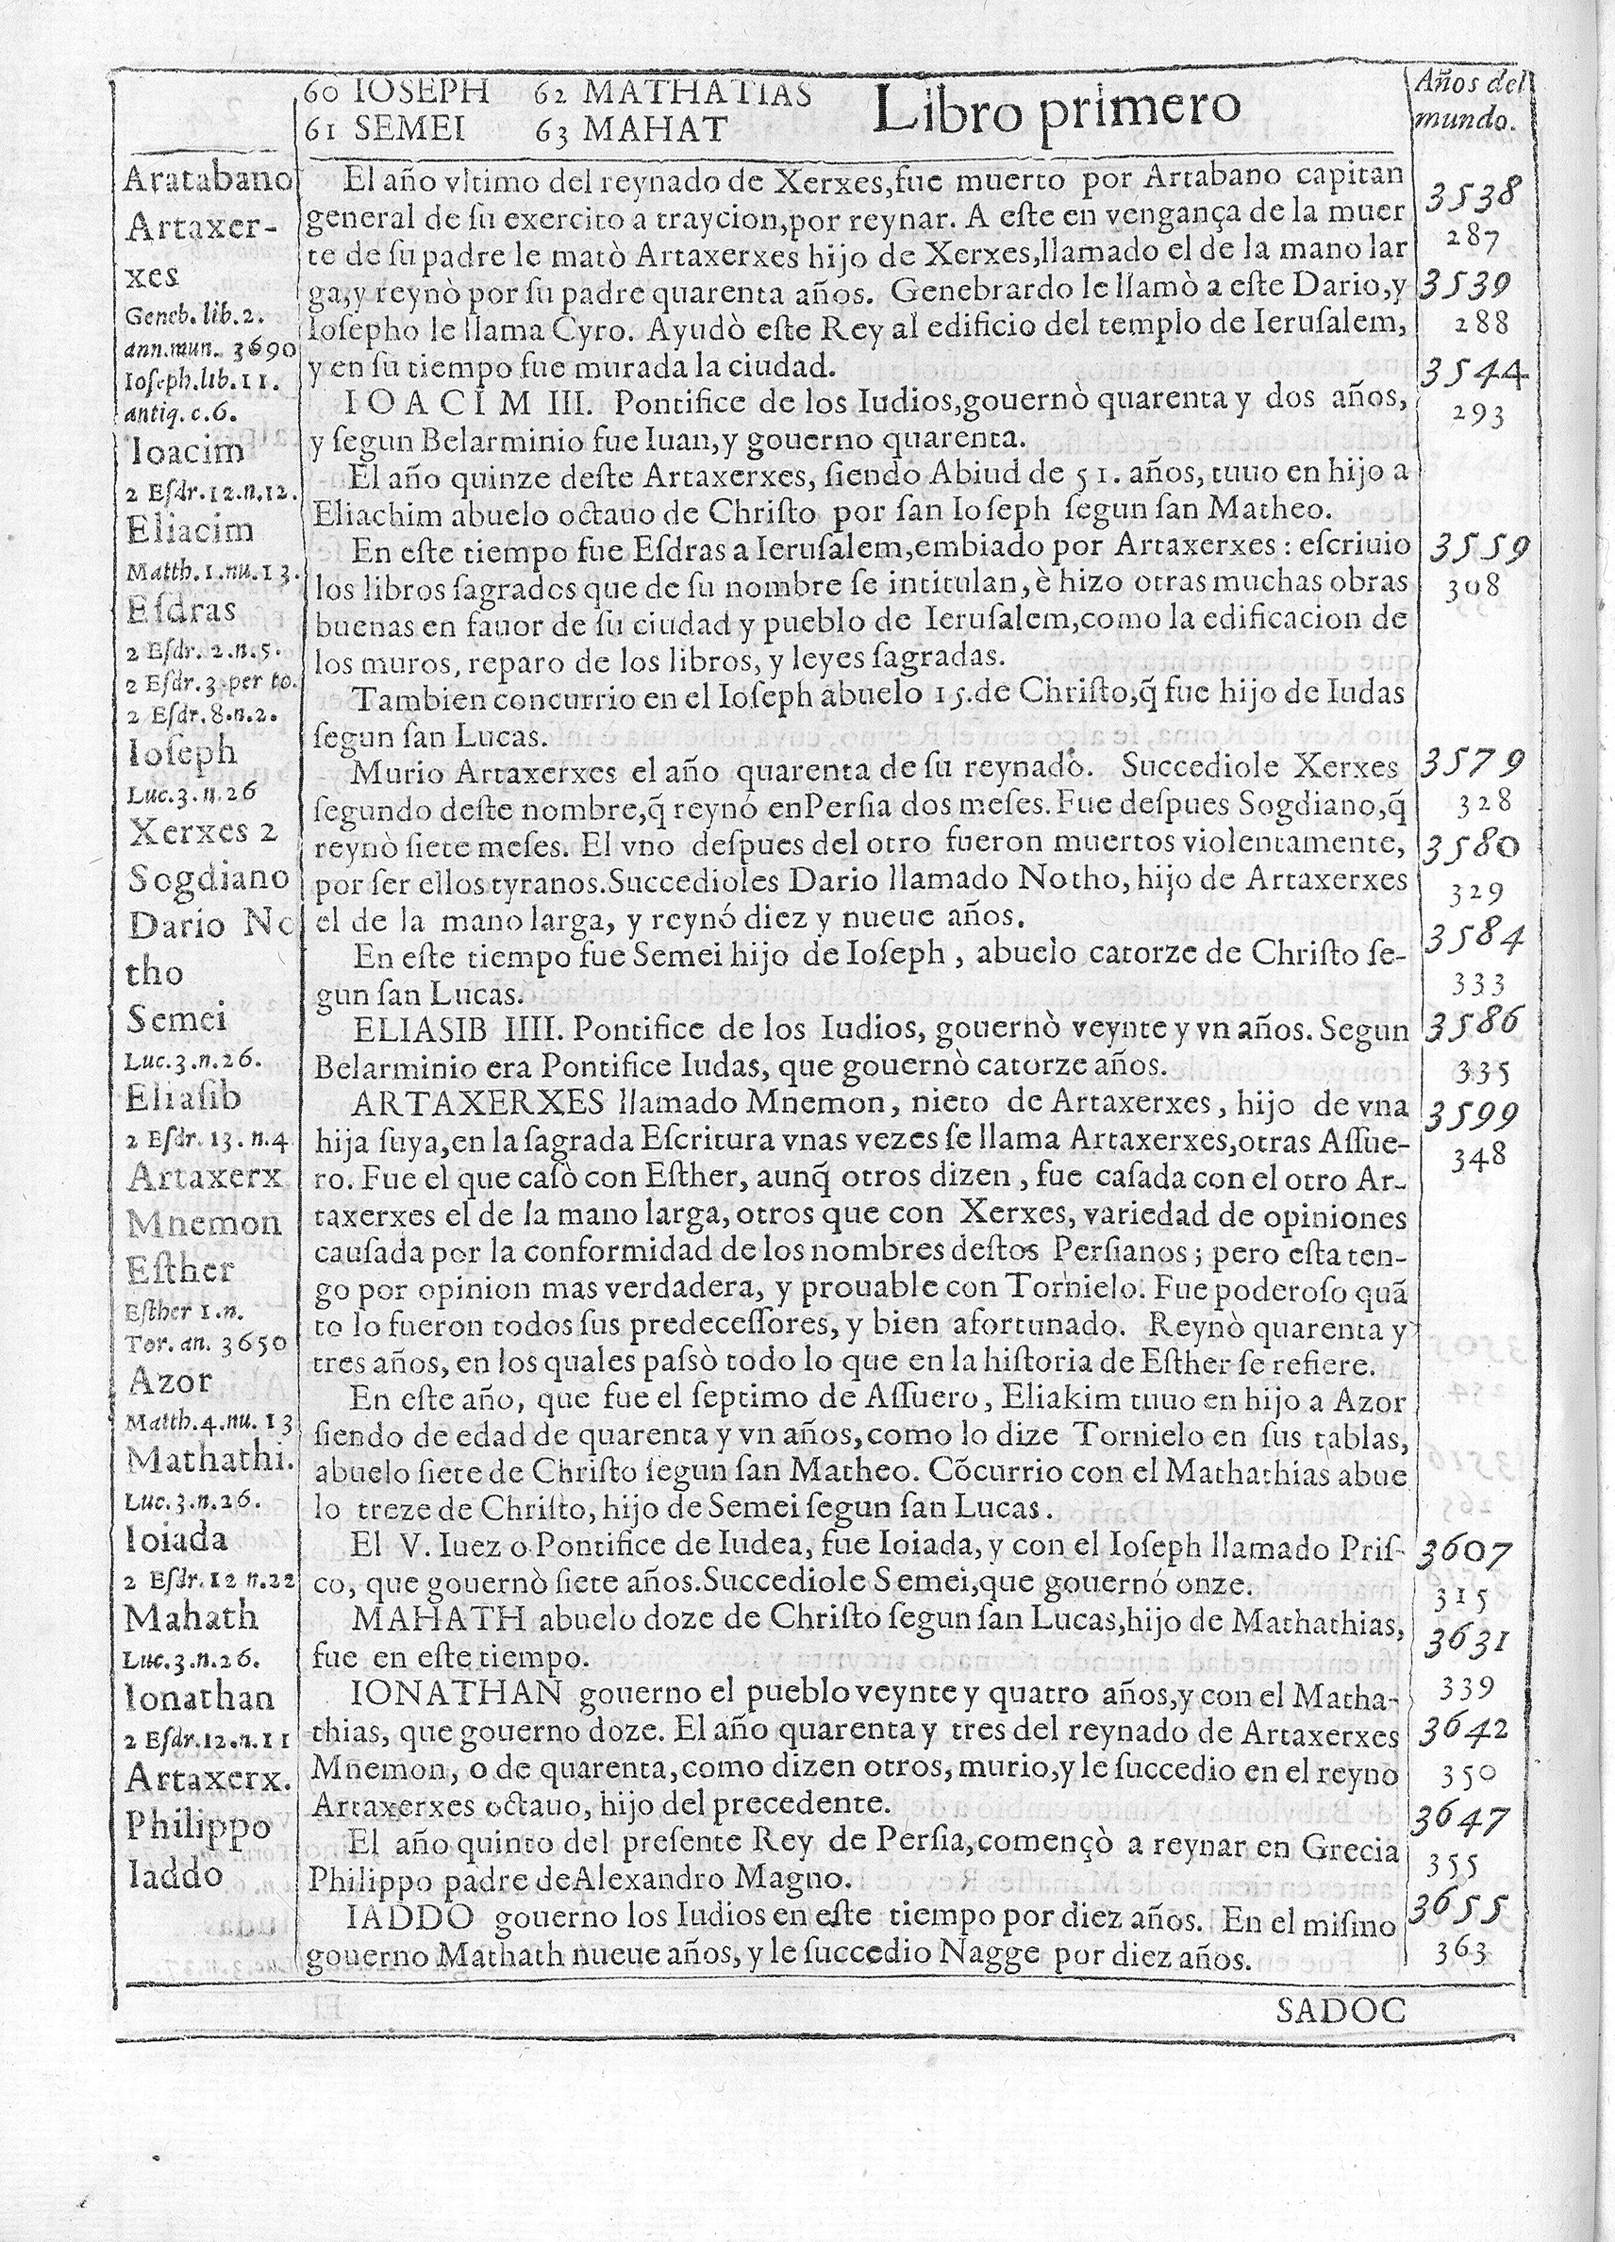 60 IOSEPH 62 MATHATIAS
61 SEMEI 63 MAHAT
Libro primero
Años del
mundo.
Aratabano
Artaxer-
xes
Geneb. lib. 2.
ann. mun. 3690
Ioſeph. lib. 11.
antiq. c. 6.
Ioacim
2 Eſdr. 12. n. 12.
Eliacim
Matth. 1. nu. 13.
Eſdras
2 Eſdr. 2. n. 5.
2 Eſdr. 3. per to.
2 Eſdr. 8. n. 2.
Ioſeph
Luc. 3. n. 26
Xerxes 2
Sogdiano
Dario No
tho
Semei
Luc. 3. n. 26.
Eliaſib
2 Eſdr. 13. n. 4
Artaxerx
Mnemon
Eſther
Eſther 1. n.
Tor. an. 3650
Azor
Matth. 4. nu. 13
Mathathi.
Luc. 3. n. 26.
Ioiada
2 Eſdr. 12 n. 22
Mahath
Luc. 3. n. 26.
Ionathan
2 Eſdr. 12. n. 11
Artaxerx.
Philippo
Iaddo
El año vltimo del reynado de Xerxes, fue muerto por Artabano capitan
general de ſu exercito a traycion, por reynar. A eſte en vengança de la muer
te de ſu padre le matò Artaxerxes hijo de Xerxes, llamado el de la mano lar
ga, y reynò por ſu padre quarenta años. Genebrardo le llamò a eſte Dario, y
Ioſepho le llama Cyro. Ayudò eſte Rey al edificio del templo de Ieruſalem,
y en ſu tiempo fue murada la ciudad.
IOACIM III. Pontifice de los Iudios, gouernò quarenta y dos años,
y ſegun Belarminio fue Iuan, y gouerno quarenta.
El año quinze deſte Artaxerxes, ſiendo Abiud de 51. años, tuuo en hijo a
Eliachim abuelo octauo de Chriſto por ſan Ioſeph ſegun ſan Matheo.
En eſte tiempo fue Eſdras a Ieruſalem, embiado por Artaxerxes : eſcriuio
los libros ſagrados que de ſu nombre ſe intitulan, è hizo otras muchas obras
buenas en fauor de ſu ciudad y pueblo de Ieruſalem, como la edificacion de
los muros, reparo de los libros, y leyes ſagradas.
Tambien concurrio en el Ioſeph abuelo 15. de Chriſto, q̃ fue hijo de Iudas
ſegun ſan Lucas.
Murio Artaxerxes el año quarenta de ſu reynado. Succediole Xerxes
ſegundo deſte nombre, q̃ reynó en Perſia dos meſes. Fue deſpues Sogdiano, q̃
reynò ſiete meſes. El vno deſpues del otro fueron muertos violentamente,
por ſer ellos tyranos. Succedioles Dario llamado Notho, hijo de Artaxerxes
el de la mano larga, y reynó diez y nueue años.
En eſte tiempo fue Semei hijo de Ioſeph, abuelo catorze de Chriſto ſe-
gun ſan Lucas.
ELIASIB IIII. Pontifice de los Iudios, gouernò veynte y vn años. Segun
Belarminio era Pontifice Iudas, que gouernò catorze años.
ARTAXERXES llamado Mnemon, nieto de Artaxerxes, hijo de vna
hija ſuya, en la ſagrada Eſcritura vnas vezes ſe llama Artaxerxes, otras Aſſue-
ro. Fue el que caſò con Eſther, aunq̃ otros dizen, fue caſada con el otro Ar-
taxerxes el de la mano larga, otros que con Xerxes, variedad de opiniones
cauſada por la conformidad de los nombres deſtos Perſianos; pero eſta ten-
go por opinion mas verdadera, y prouable con Tornielo. Fue poderoſo quã
to lo fueron todos ſus predeceſſores, y bien afortunado. Reynò quarenta y
tres años, en los quales paſsò todo lo que en la hiſtoria de Eſther ſe refiere.
En eſte año, que fue el ſeptimo de Aſſuero, Eliakim tuuo en hijo a Azor
ſiendo de edad de quarenta y vn años, como lo dize Tornielo en ſus tablas,
abuelo ſiete de Chriſto ſegun ſan Matheo. Cõcurrio con el Mathathias abue
lo treze de Chriſto, hijo de Semei ſegun ſan Lucas.
El V. Iuez o Pontifice de Iudea, fue Ioiada, y con el Ioſeph llamado Priſ-
co, que gouernò ſiete años. Succediole Semei, que gouernó onze.
MAHATH abuelo doze de Chriſto ſegun ſan Lucas, hijo de Mathathias,
fue en eſte tiempo.
IONATHAN gouerno el pueblo veynte y quatro años, y con el Matha-
thias, que gouerno doze. El año quarenta y tres del reynado de Artaxerxes
Mnemon, o de quarenta, como dizen otros, murio, y le ſuccedio en el reyno
Artaxerxes octauo, hijo del precedente.
El año quinto del preſente Rey de Perſia, començò a reynar en Grecia
Philippo padre de Alexandro Magno.
IADDO gouerno los Iudios en eſte tiempo por diez años. En el miſmo
gouerno Mathath nueue años, y le ſuccedio Nagge por diez años.
3538
287
3539
288
3544
293
3559
308
3579
328
3580
329
3584
333
3586
335
3599
348
3607
315
3631
339
3642
350
3647
355
3655
363
SADOC